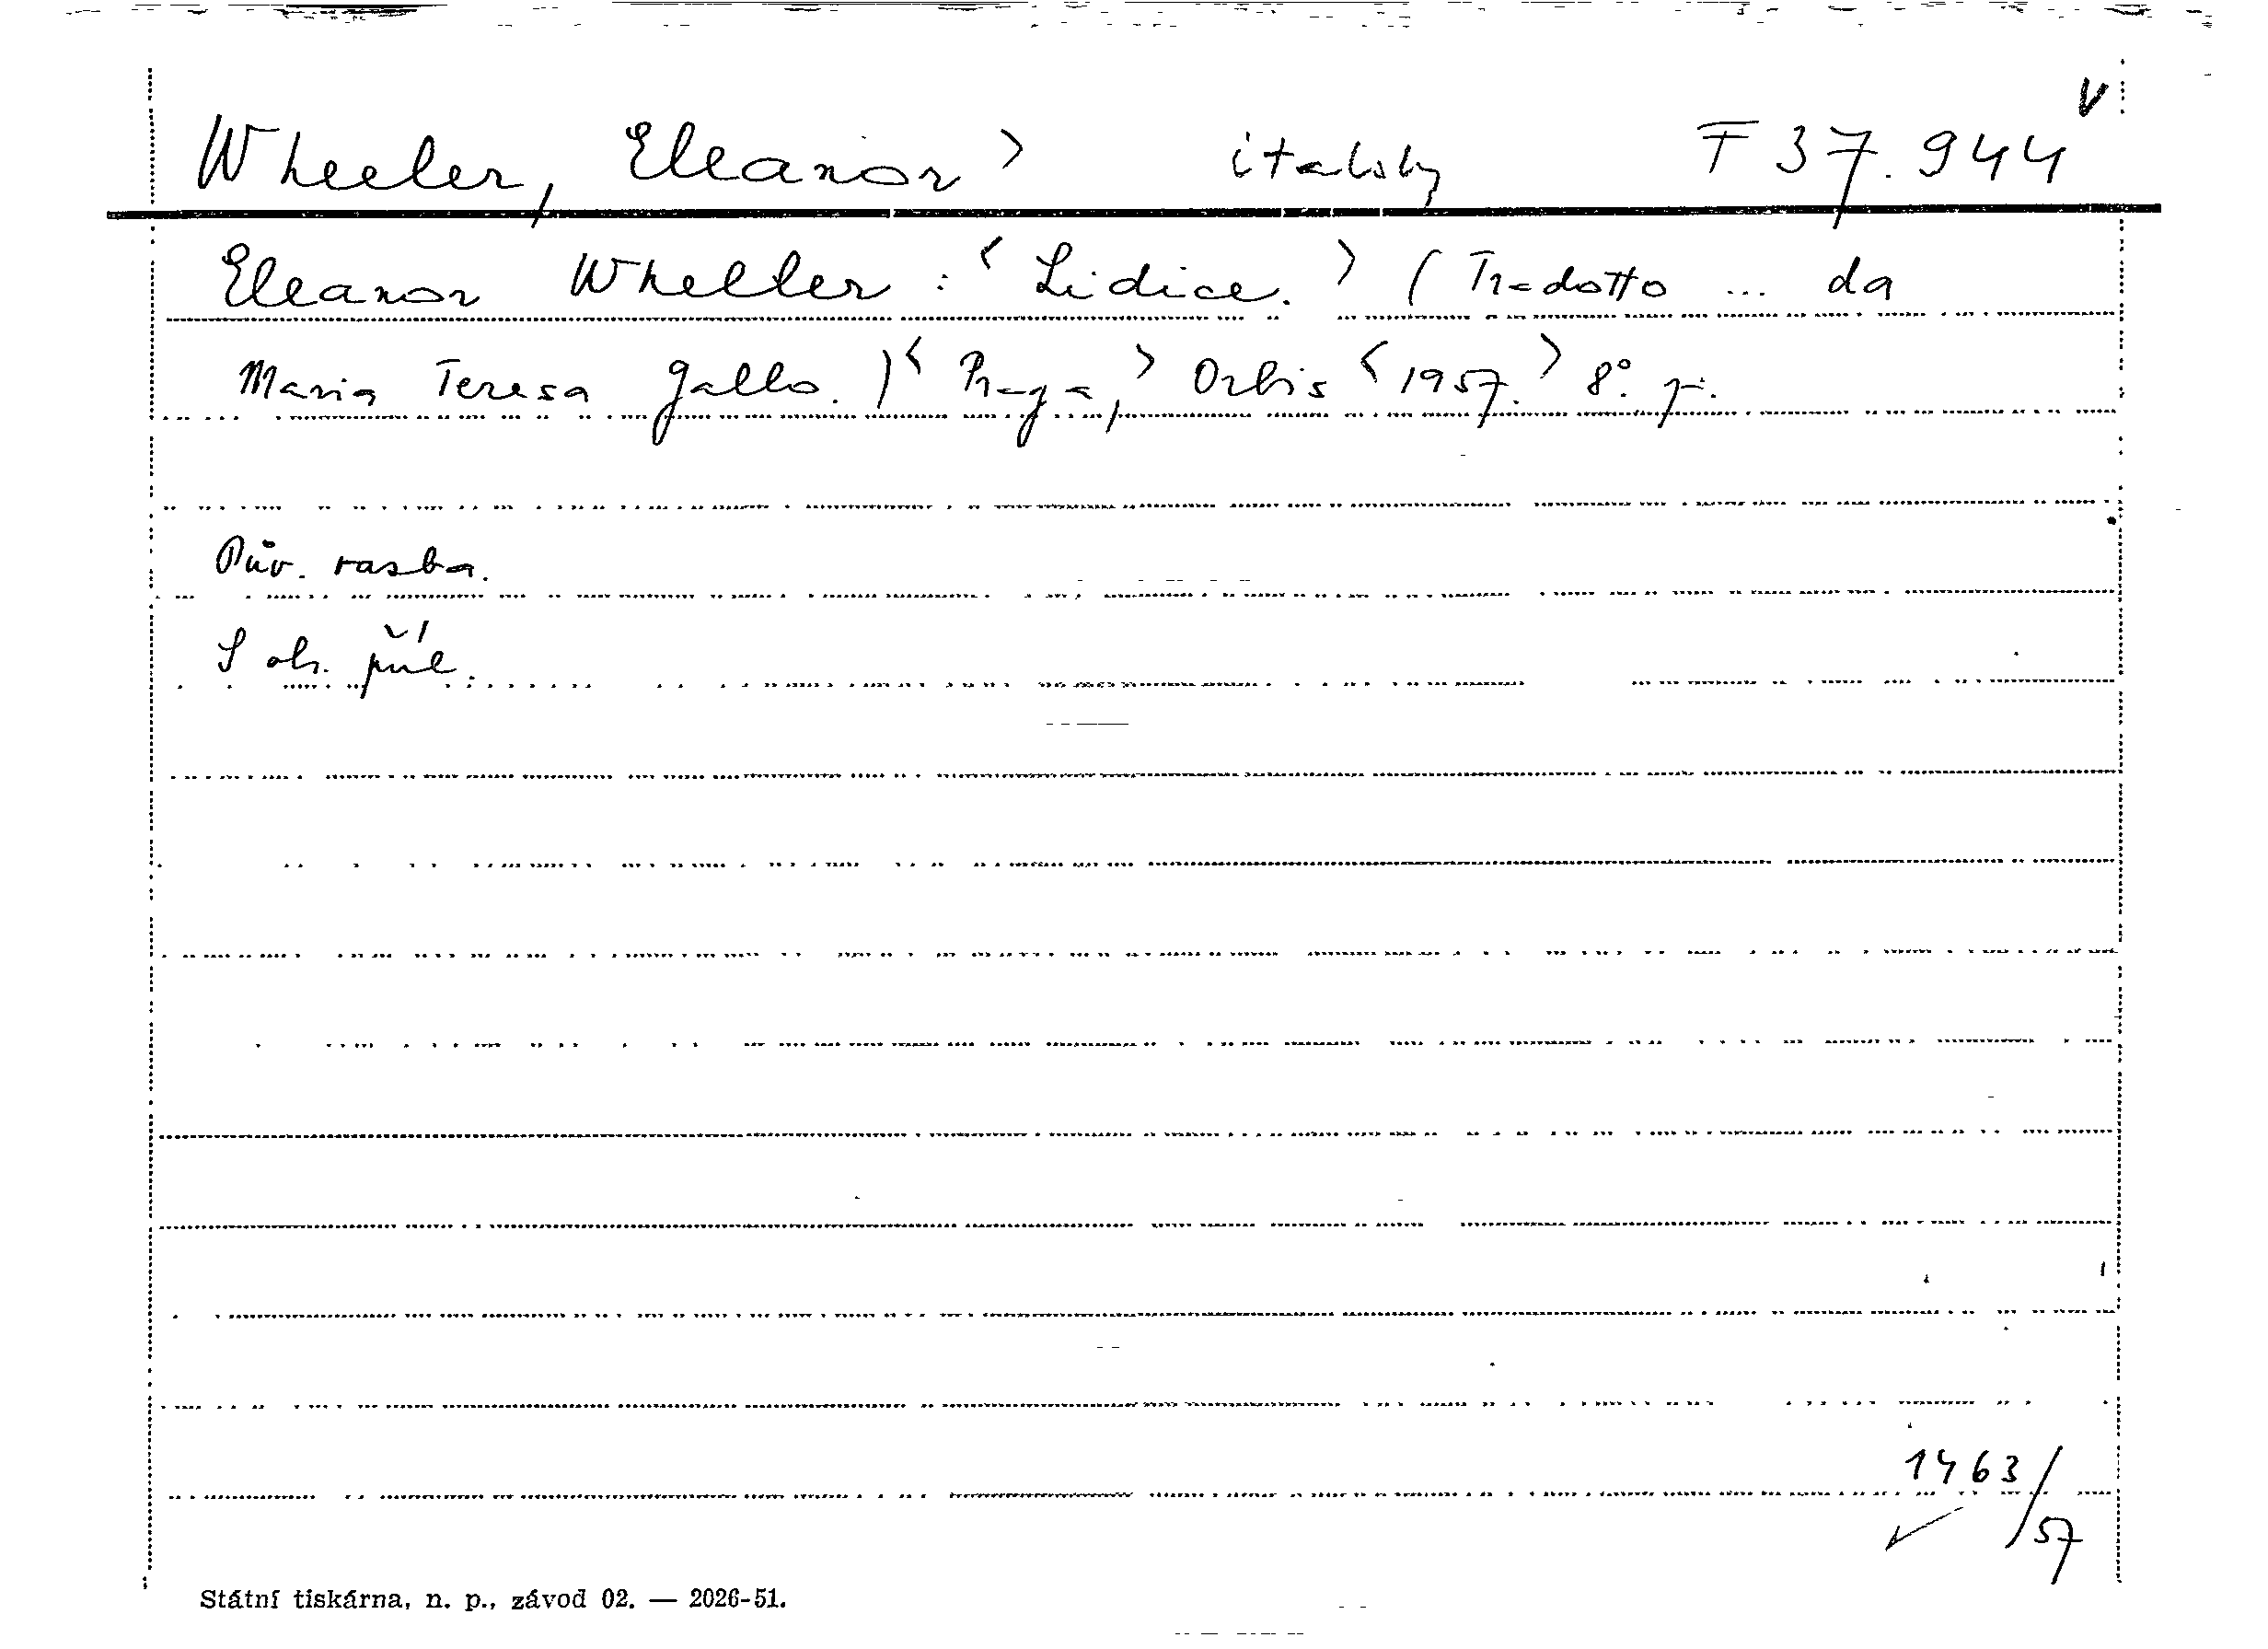 Wheeler, Eleanor> italsky F 37.944 v
Eleanor Wheeler: <Lidice.> (Tradotto ... da
Maria Teresa Gallo.) <Praga,> Orbis <1957.> 8°.
Pův. vazba.
S obr. příl.
1463/57
Státní tiskárna, n. p., závod 02. — 2026-51.